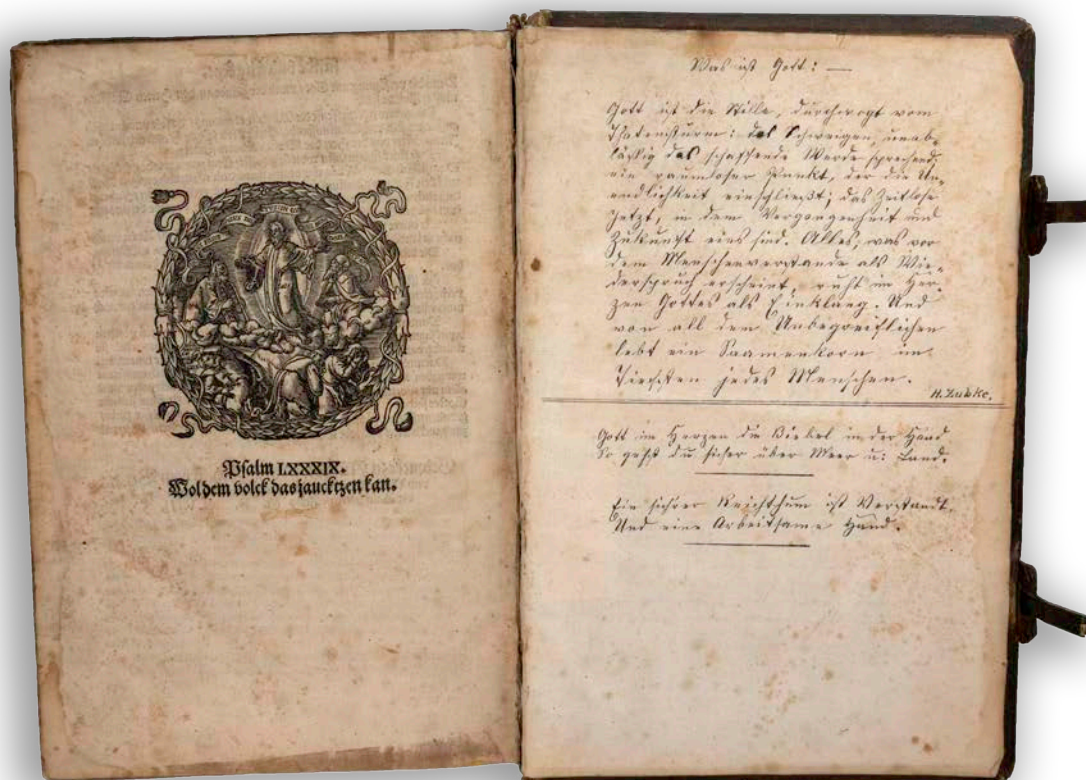 Psalm LXXXIX.
Wol dem volck das jauchtzen kan.
Was ist Gott: —
Gott ist die Stille, durchwogt vom
Thatensturm: das Schweigen, unab-
läßig das schaffende Werde sprechend;
ein raumloser Punkt, der die Un-
endlichkeit einschließt; das Zeitlose
Jetzt, in dem Vergangenheit und
Zukunft eins sind. Alles, was vor
dem Menschenverstande als Wie-
derspruch erscheint, ruht im Her-
zen Gottes als Einklang. Und
von all dem Unbegreiflichen
lebt ein Saamenkorn im
Tiefsten jedes Menschen.
H. Lubke.
Gott im Herzen die Biebel in der Hand
So gehst du sicher über Meer u: Land.
Ein sichrer Reichthum ist Verstandt.
Und eine Arbeitsame Hand.